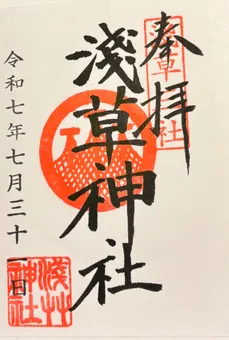 奉拝
浅草神社
淺草神社
令和七年七月三十一日
淺草
神社